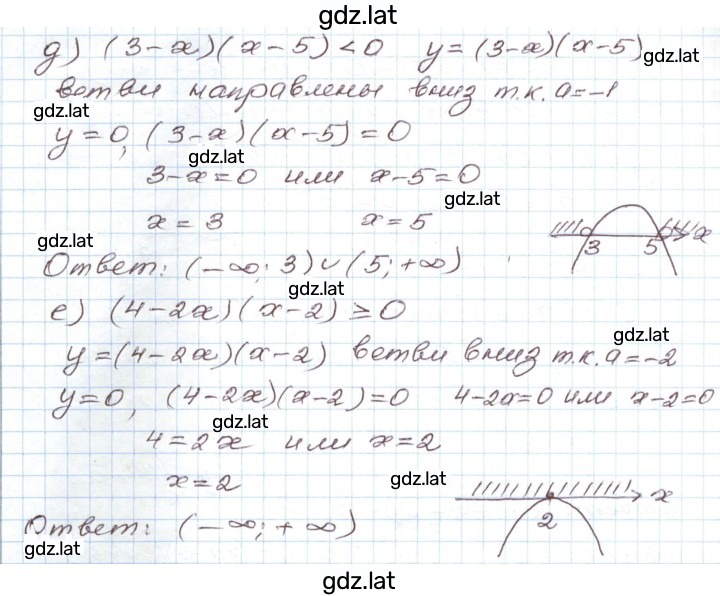 gdz.lat
д) (3-x)(x-5)<0 y=(3-x)(x-5) gdz.lat
ветви направлены вниз т.к. a=-1
gdz.lat
y=0, (3-x)(x-5)=0
gdz.lat
3-x=0 или x-5=0
gdz.lat
x=3 x=5
3 5 x
gdz.lat
Ответ: (-∞; 3)∪(5; +∞)
gdz.lat
е) (4-2x)(x-2)≥0
gdz.lat
y=(4-2x)(x-2) ветви вниз т.к. a=-2
y=0, (4-2x)(x-2)=0 4-2x=0 или x-2=0
gdz.lat
4=2x или x=2
x=2 gdz.lat
2 x
Ответ: (-∞; +∞)
gdz.lat
gdz.lat